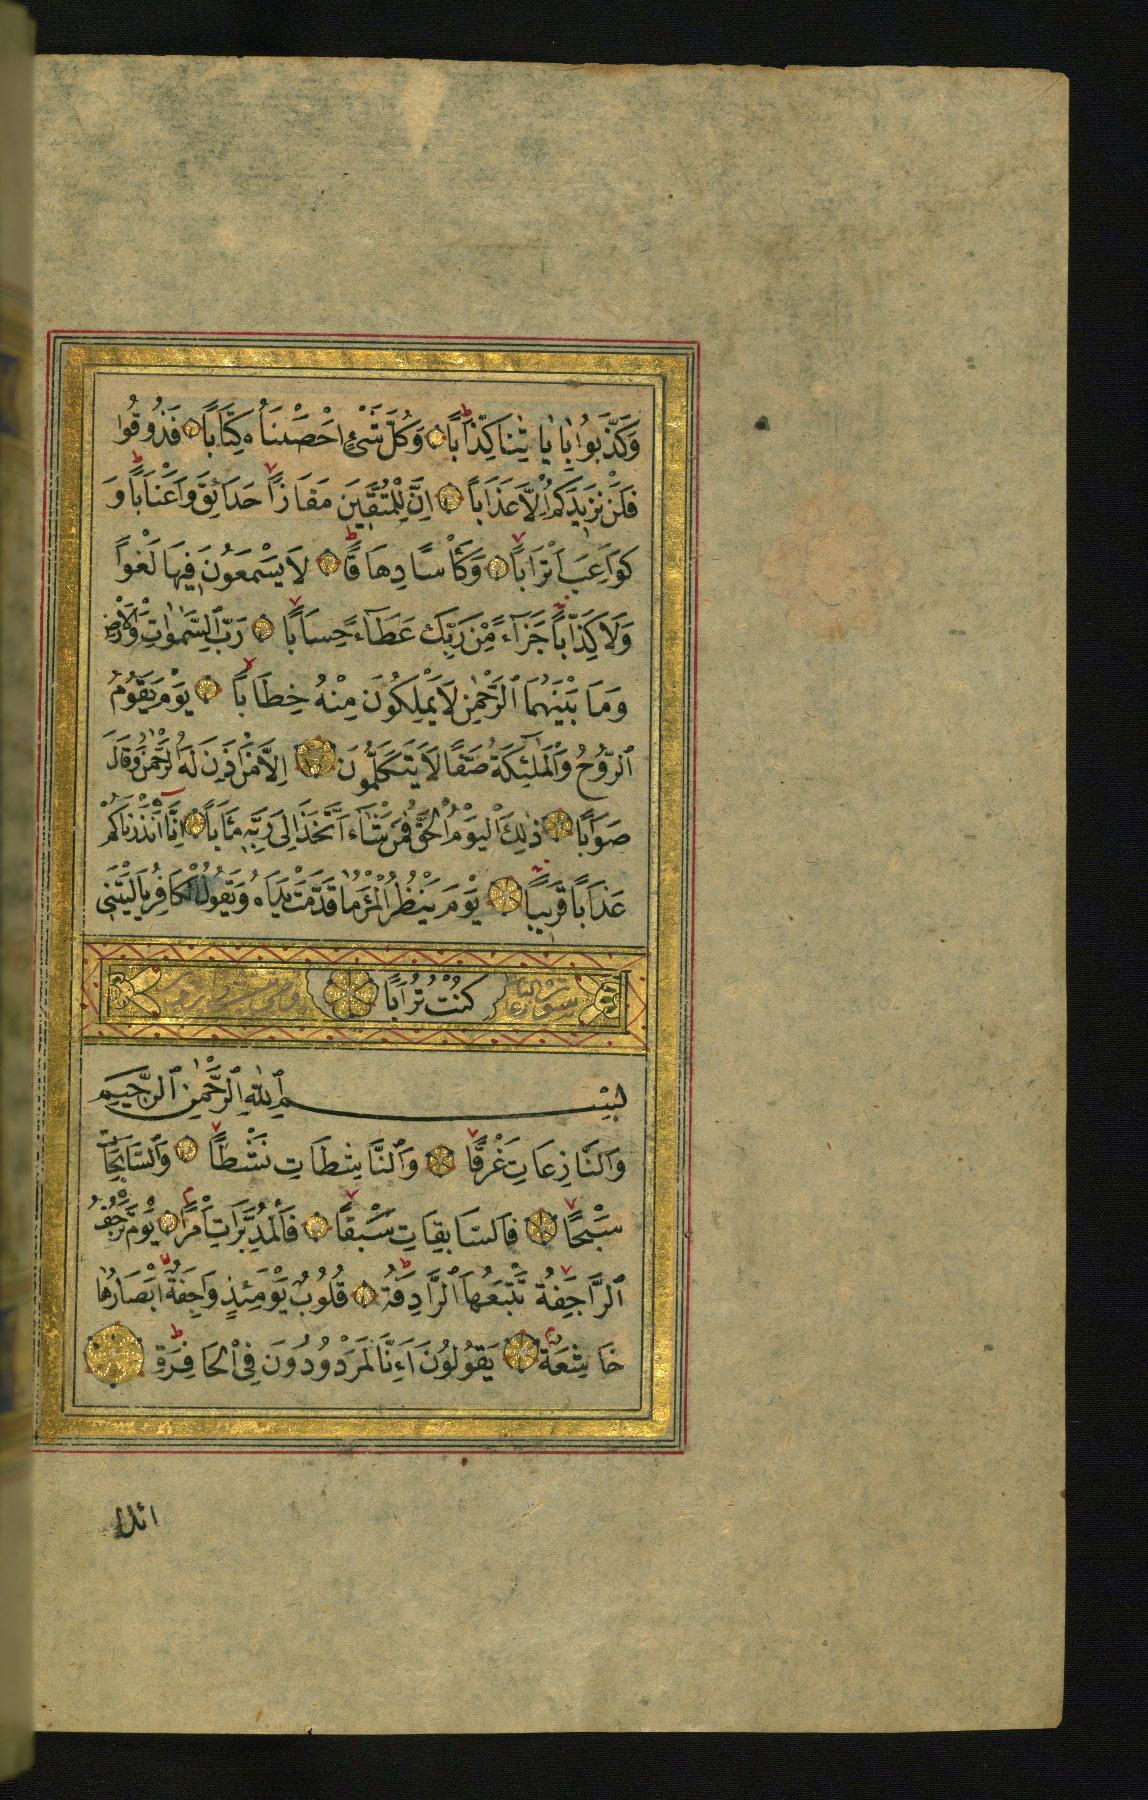 وَكَذَّبُوا بِاٰيَاتِنَا كِذَّابًا وَكُلَّ شَيْءٍ اَحْصَيْنَاهُ كِتَابًا فَذُوقُوا
فَلَنْ نَزِيدَكُمْ اِلَّا عَذَابًا اِنَّ لِلْمُتَّقِينَ مَفَازًا حَدَائِقَ وَاَعْنَابًا وَ
كَوَاعِبَ اَتْرَابًا وَكَأْسًا دِهَاقًا لَا يَسْمَعُونَ فِيهَا لَغْوًا
وَلَا كِذَّابًا جَزَاءً مِنْ رَبِّكَ عَطَاءً حِسَابًا رَبِّ السَّمٰوَاتِ وَالْاَرْضِ
وَمَا بَيْنَهُمَا الرَّحْمٰنِ لَا يَمْلِكُونَ مِنْهُ خِطَابًا يَوْمَ يَقُومُ
الرُّوحُ وَالْمَلٰئِكَةُ صَفًّا لَا يَتَكَلَّمُونَ اِلَّا مَنْ اَذِنَ لَهُ الرَّحْمٰنُ وَقَالَ
صَوَابًا ذٰلِكَ الْيَوْمُ الْحَقُّ فَمَنْ شَاءَ اتَّخَذَ اِلٰى رَبِّهِ مَئَابًا اِنَّا اَنْذَرْنَاكُمْ
عَذَابًا قَرِيبًا يَوْمَ يَنْظُرُ الْمَرْءُ مَا قَدَّمَتْ يَدَاهُ وَيَقُولُ الْكَافِرُ يَا لَيْتَنِي
كُنْتُ تُرَابًا
بِسْمِ اللّٰهِ الرَّحْمٰنِ الرَّحِيمِ
وَالنَّازِعَاتِ غَرْقًا وَالنَّاشِطَاتِ نَشْطًا وَالسَّابِحَاتِ
سَبْحًا فَالسَّابِقَاتِ سَبْقًا فَالْمُدَبِّرَاتِ اَمْرًا يَوْمَ تَرْجُفُ
الرَّاجِفَةُ تَتْبَعُهَا الرَّادِفَةُ قُلُوبٌ يَوْمَئِذٍ وَاجِفَةٌ اَبْصَارُهَا
خَاشِعَةٌ يَقُولُونَ ءَاِنَّا لَمَرْدُودُونَ فِي الْحَافِرَةِ
ائذا